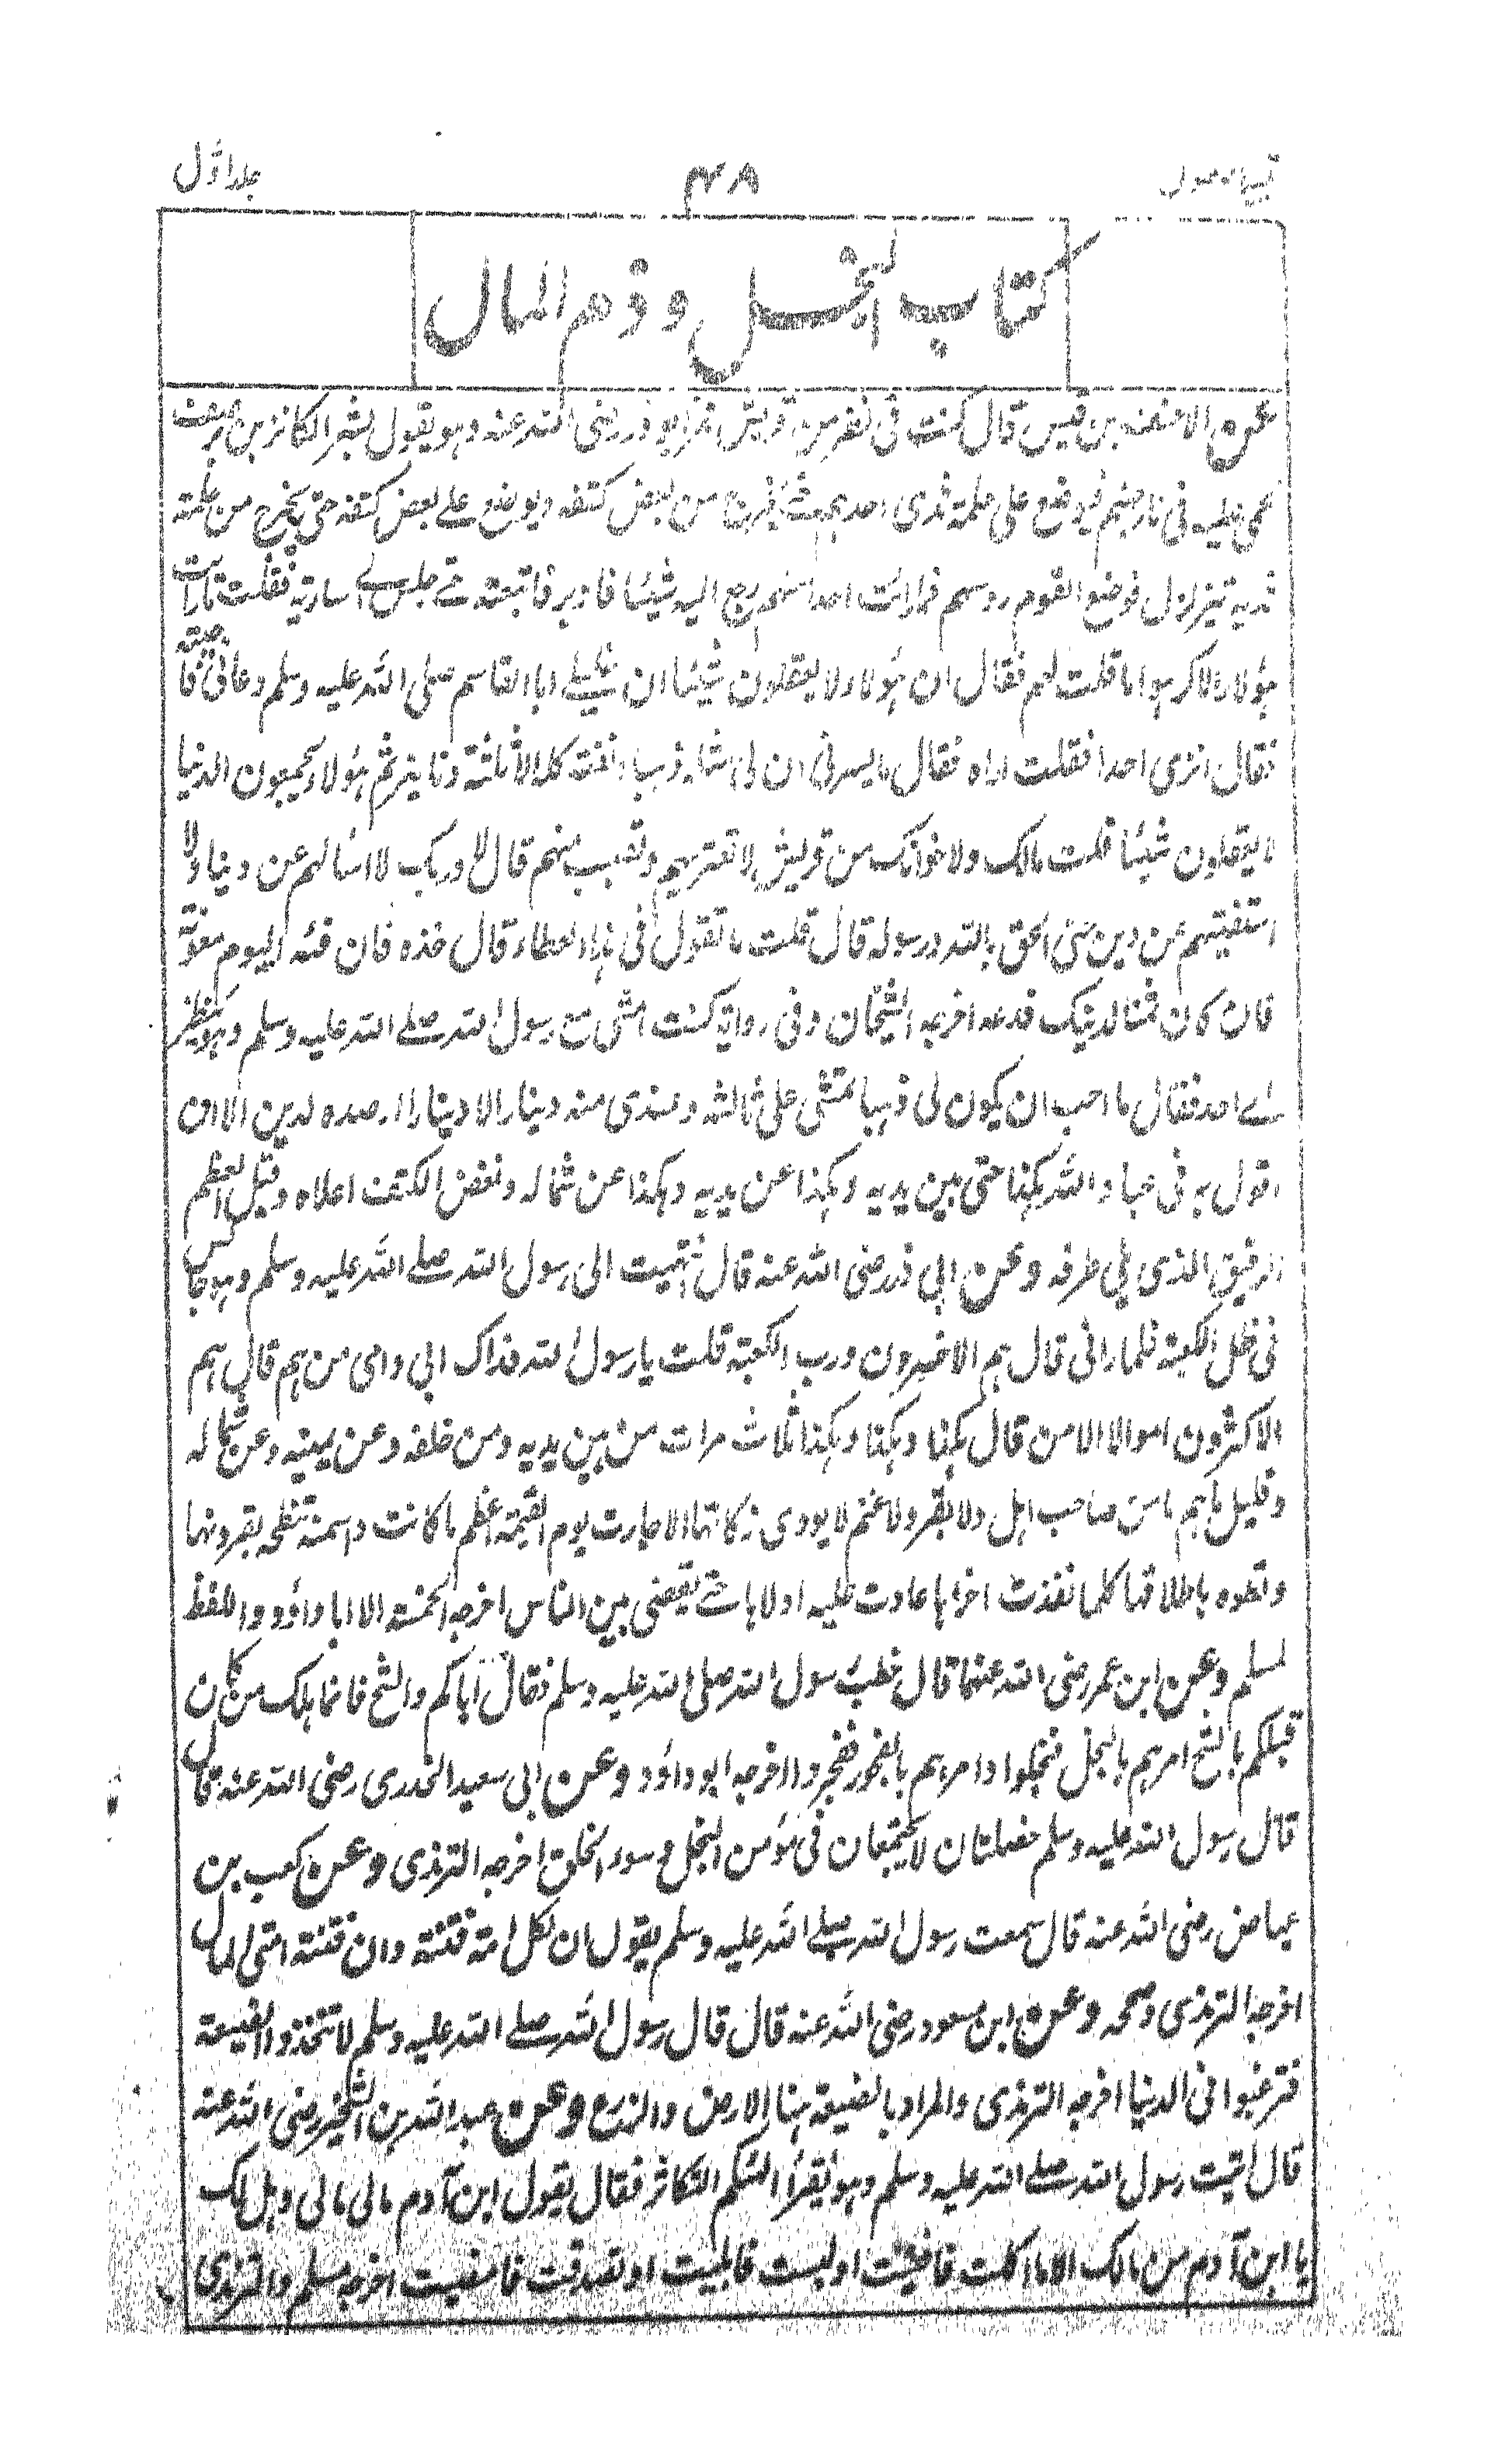 جلد اول
۴۸
تیسیر الاصول
کتاب البخل وذم المال
عن الاحنف بن قیس قال کنت فی نفر من قریش فمر ابو ذر رضی اللہ عنہ وہو یقول بشر الکانزین برضف
یحمی علیہ فی نار جہنم فیوضع علی حلمة ثدی احدہم حتے یخرج من نغض کتفہ ویوضع علے نغض کتفہ حتی یخرج من حلمة
ثدیہ یتزلزل فوضع القوم رؤسہم فما رائت احدا منہم رجع الیہ شیئا فادبر فاتبعتہ حتے جلس الے ساریة فقلت ما رأیت
ہؤلاء الا کرہوا ما قلت لہم فقال ان ہؤلاء لا یعقلون شیئا ان خلیلے ابا القاسم صلی اللہ علیہ وسلم دعانی فاجبتہ
فقال اتری احدا فقلت اراہ فقال ما یسرنی ان لی مثلہ ذہبا انفقہ کلہ الا ثلثة دنانیر ثم ہؤلاء یجمعون الدنیا
لا یعقلون شیئا قلت مالک ولاخوانک من قریش لا تعتریہم وتصیب منہم قال لا وربک لا اسألہم عن دنیا ولا
استفتیہم عن دین حتی الحق باللہ ورسولہ قال قلت ما تقول فی ہذا العطاء قال خذہ فان فیہ الیوم معونة
فان کان ثمنا لدینک فدعہ اخرجہ الشیخان وفی روایة کنت امشی مع رسول اللہ صلے اللہ علیہ وسلم وہو ینظر
الے احد فقال ما احب ان یکون لی ذہبا تمشی علی ثالثة وعندی منہ دینار الا دینارا ارصدہ لدین الا ان
اقول بہ فی عباد اللہ ہکذا حثی بین یدیہ وہکذا عن یدیہ وہکذا عن شمالہ ونغض الکتف اعلاہ وقیل العظم
الرقیق الذی یلی طرفہ وعن ابی ذر رضی اللہ عنہ قال انتہیت الی رسول اللہ صلے اللہ علیہ وسلم وہو جالس
فی ظل الکعبة فلما رانی قال ہم الاخسرون ورب الکعبة قلت یا رسول اللہ فداک ابی وامی من ہم قال ہم
الاکثرون اموالا الا من قال ہکذا وہکذا وہکذا ثلاث مرات من بین یدیہ ومن خلفہ وعن یمینہ وعن شمالہ
وقلیل ما ہم ما من صاحب ابل ولا بقر ولا غنم لا یودی زکاتہا الا جاءت یوم القیمة اعظم ما کانت واسمنہ تنطحہ بقرونہا
وتطوہ باظلافہا کلما نفذت اخراہا عادت علیہ اولاہا حتے یقضی بین الناس اخرجہ الخمسة الا ابا داؤد واللفظ
لمسلم وعن ابن عمر رضی اللہ عنہما قال خطب رسول اللہ صلی اللہ علیہ وسلم فقال ایاکم والشح فانما ہلک من کان
قبلکم بالشح امرہم بالبخل فبخلوا وامرہم بالفجور ففجروا اخرجہ ابو داؤد وعن ابی سعید الخدری رضی اللہ عنہ قال
قال رسول اللہ علیہ وسلم خصلتان لا یجتمعان فی مؤمن البخل وسوء الخلق اخرجہ الترمذی وعن کعب بن
عیاض رضی اللہ عنہ قال سمعت رسول اللہ صلے اللہ علیہ وسلم یقول ان لکل امة فتنة وان فتنة امتی المال
اخرجہ الترمذی وصححہ وعن ابن مسعود رضی اللہ عنہ قال قال رسول اللہ صلے اللہ علیہ وسلم لا تتخذوا الضیعة
فترغبوا فی الدنیا اخرجہ الترمذی والمراد بالضیعة ہنا الارض والزرع وعن عبد اللہ بن الشخیر رضی اللہ عنہ
قال اتیت رسول اللہ صلے اللہ علیہ وسلم وہو یقرأ الہٰکم التکاثر فقال یقول ابن آدم مالی مالی وہل لک
یا ابن آدم من مالک الا ما اکلت فافنیت او لبست فابلیت او تصدقت فامضیت اخرجہ مسلم والترمذی